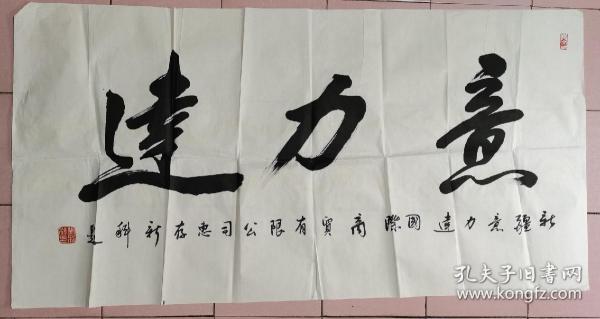 意力達
新疆意力達國際商貿有限公司惠存新科書
孔夫子旧书网
www.kongfz.com